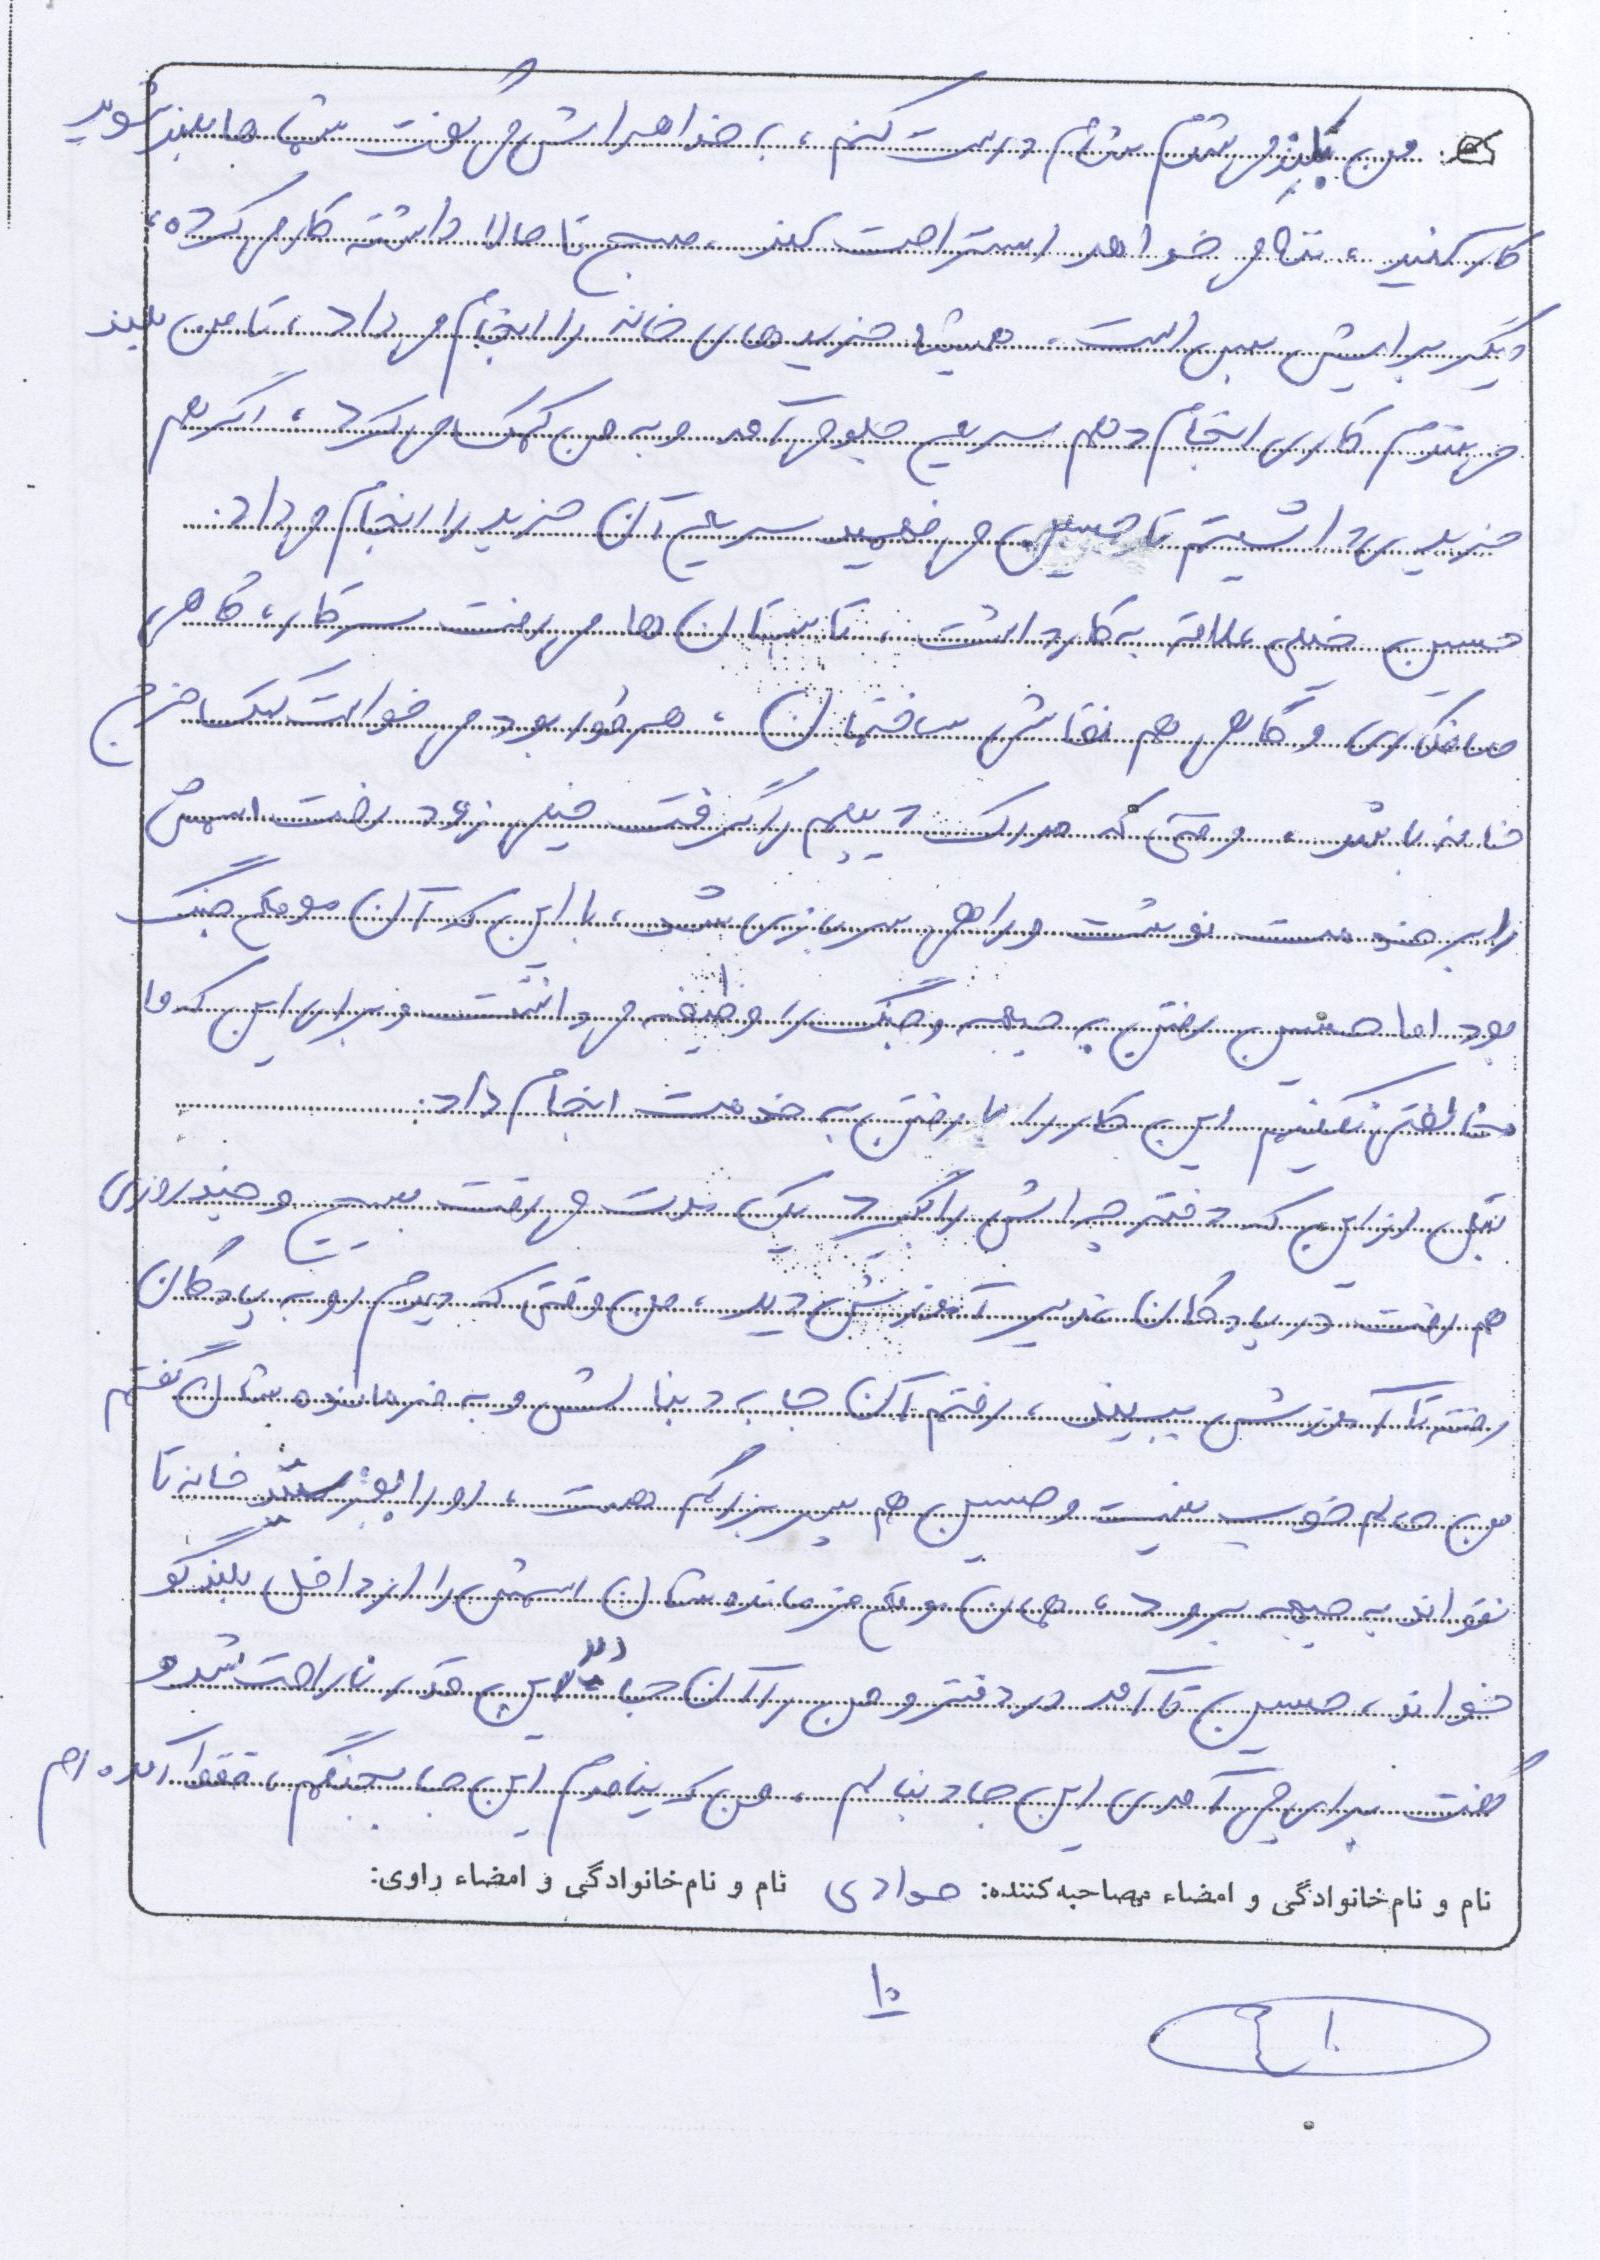 من بلند می شدم شام درست کنم، به خواهرانش می گفت شما ها بلند شوید
کار کنید، ننه می خواهد استراحت کند، صبح تا حالا داشته کار می کرده،
دیگر برایش بس است. همیشه خریدهای خانه را انجام می داد، تا من بلند
می شدم کاری انجام دهم سریع جلو می آمد و به من کمک می کرد، اگر هم
خریدی داشتیم تا حسین می فهمید سریع آن خرید را انجام می داد.
حسین خیلی علاقه به کار داشت، تابستان ها می رفت سر کار، گاهی
صافکاری و گاهی هم نقاشی ساختمان، هر طور بود می خواست کمک خرج
خانه باشد، وقتی که مدرک دیپلم را گرفت خیلی زود رفت اسمش
را بر خدمت نوشت و راهی سربازی شد، با این که آن موقع جنگ
بود اما حسین رفتن به جبهه و جنگ را وظیفه می دانست و برای این که ما
مخالفتی نکنیم این کار را با رفتن به خدمت انجام داد.
قبل از این که دفترچه اش را بگیرد یک مدت می رفت بسیج و چند روزی
هم رفت در پادگان غدیر آموزش دید، من وقتی که دیدم رو به پادگان
رفته تا آموزش ببیند، رفتم آن جا به دنبالش و به فرمانده شان گفتم
من حالم خوب نیست و حسین هم پسر بزرگم هست، او را بفرستید خانه تا
نتواند به جبهه برود، همان موقع فرمانده شان اسمش را از داخل بلندگو
خواند، حسین تا آمد در دفتر و من را آن جا دید این قدر ناراحت شد و
گفت برای چی آمدی این جا دنبالم، من که نیامدم این جا بجنگم، فقط آمده ام
نام و نام خانوادگی و امضاء مصاحبه کننده: جوادی نام و نام خانوادگی و امضاء راوی:
۱۰